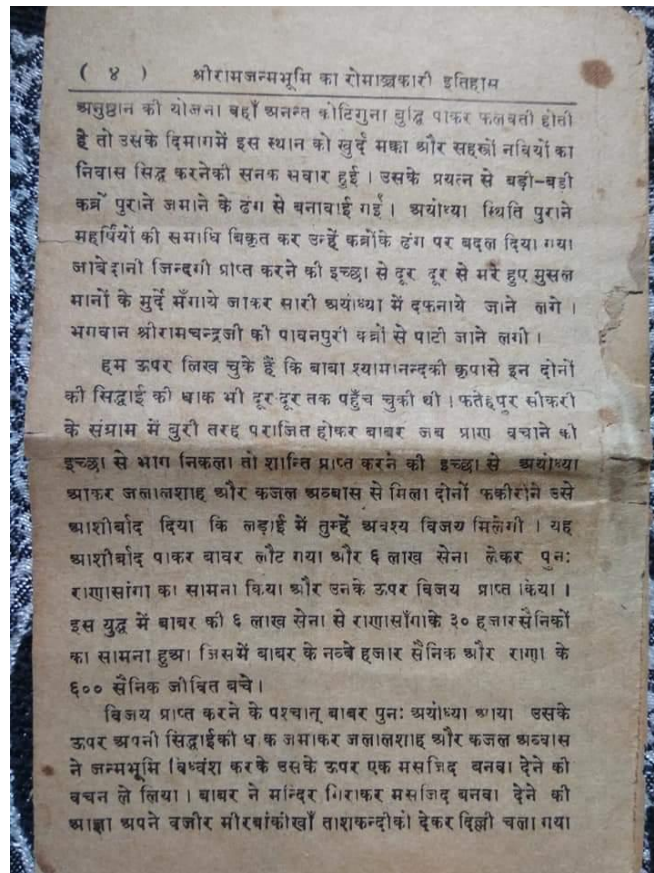 ( ४ ) श्रीरामजन्मभूमि का रोमाञ्चकारी इतिहास
अनुष्ठान की योजना वहाँ अनन्त कोटिगुना बुद्धि पाकर फलवती होती
है तो उसके दिमागमें इस स्थान को खुर्द मक्का और सहस्त्रों नबियों का
निवास सिद्ध करनेकी सनक सवार हुई । उसके प्रयत्न से बड़ी-बड़ी
कब्रें पुराने जमाने के ढंग से बनावाई गईं । अयोध्या स्थिति पुराने
महर्षियों की समाधि बिकृत कर उन्हें कब्रोंके ढंग पर बदल दिया गया
जाबेदानी जिन्दगी प्राप्त करने की इच्छा से दूर दूर से मरे हुए मुसल
मानों के मुर्दे मँगाये जाकर सारी अयोध्या में दफनाये जाने लगे ।
भगवान श्रीरामचन्द्रजी की पावनपुरी कब्रों से पाटी जाने लगी ।
हम ऊपर लिख चुके हैं कि बाबा श्यामानन्दकी कृपासे इन दोनों
की सिद्धाई की धाक भी दूर-दूर तक पहुँच चुकी थी । फतेहपुर सीकरी
के संग्राम में बुरी तरह पराजित होकर बाबर जब प्राण बचाने की
इच्छा से भाग निकला तो शान्ति प्राप्त करने की इच्छा से अयोध्या
आकर जलालशाह और कजल अब्बास से मिला दोनों फकीरोंने उसे
आशीर्बाद दिया कि लड़ाई में तुम्हें अवश्य विजय मिलेगी । यह
आशीर्बाद पाकर बावर लौट गया और ६ लाख सेना लेकर पुनः
राणासांगा का सामना किया और उनके ऊपर विजय प्राप्त किया ।
इस युद्ध में बाबर की ६ लाख सेना से राणासाँगाके ३० हजारसैनिकों
का सामना हुआ जिसमें बाबर के नब्बे हजार सैनिक और राणा के
६०० सैनिक जीवित बचे ।
बिजय प्राप्त करने के पश्चात् बाबर पुनः अयोध्या आया उसके
ऊपर अपनी सिद्धाईकी धाक जमाकर जलालशाह और कजल अब्बास
ने जन्मभूमि बिध्वंश करके उसके ऊपर एक मसजिद बनवा देने को
वचन ले लिया । बाबर ने मन्दिर गिराकर मसजिद बनवा देने की
आज्ञा अपने वजीर मीरबांकीखाँ ताशकन्दीको देकर दिल्ली चला गया